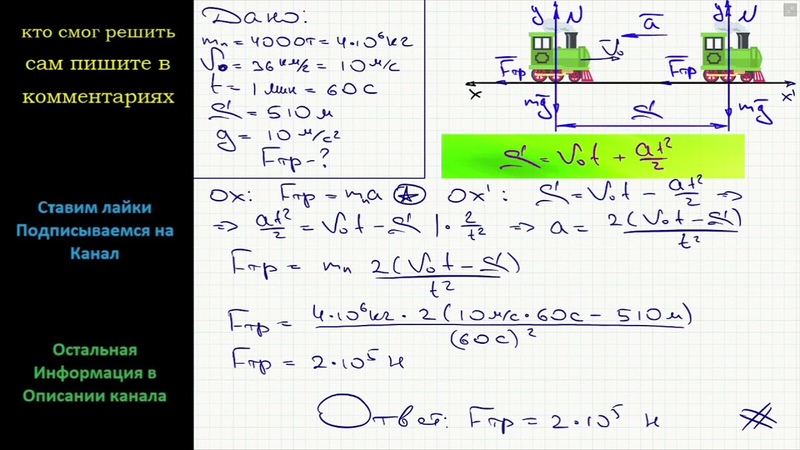 кто смог решить
сам пишите в
комментариях
Ставим лайки
Подписываемся на
Канал
Остальная
Информация в
Описании канала
Дано:
mп = 4000т = 4·10⁶ кг
V₀ = 36 км/г = 10 м/с
t = 1 мин = 60 с
S = 510 м
g = 10 м/с²
Fтр - ?
y N a y N
V₀
Fтр Fтр
x x'
mg S mg
S = V₀t + at²/2
OX: Fтр = mпa ⊛ OX': S = V₀t - at²/2 ⇒
⇒ at²/2 = V₀t - S |· 2/t² ⇒ a = 2(V₀t - S)/t²
Fтр = mп 2(V₀t - S)/t²
Fтр = 4·10⁶кг · 2(10м/с · 60с - 510м)/(60с)²
Fтр = 2·10⁵ Н
Ответ: Fтр = 2·10⁵ Н